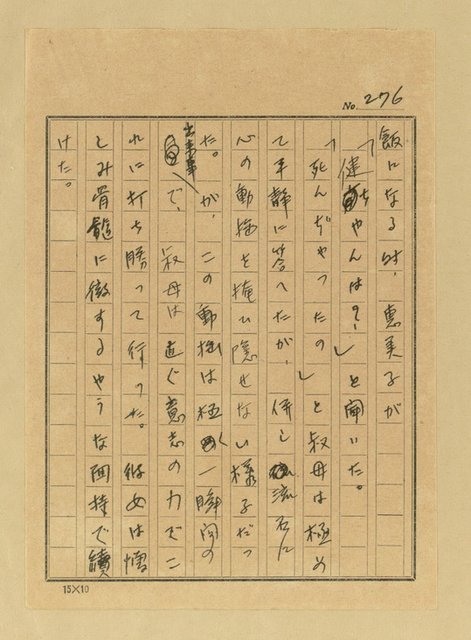 No. 276
飯になる時、恵美子が
「健ちやんは?」と聞いた。
「死んぢやつたの」と叔母は極め
て平静に答へたが、併し流石に
心の動揺を掩ひ隠せない様子だつ
た。が、この動揺は極く一瞬間の
出来事で、叔母は直ぐ意志の力でこ
れに打ち勝つて行つた。彼女は憎
しみ骨髄に徹するやうな面持で續
けた。
15×10